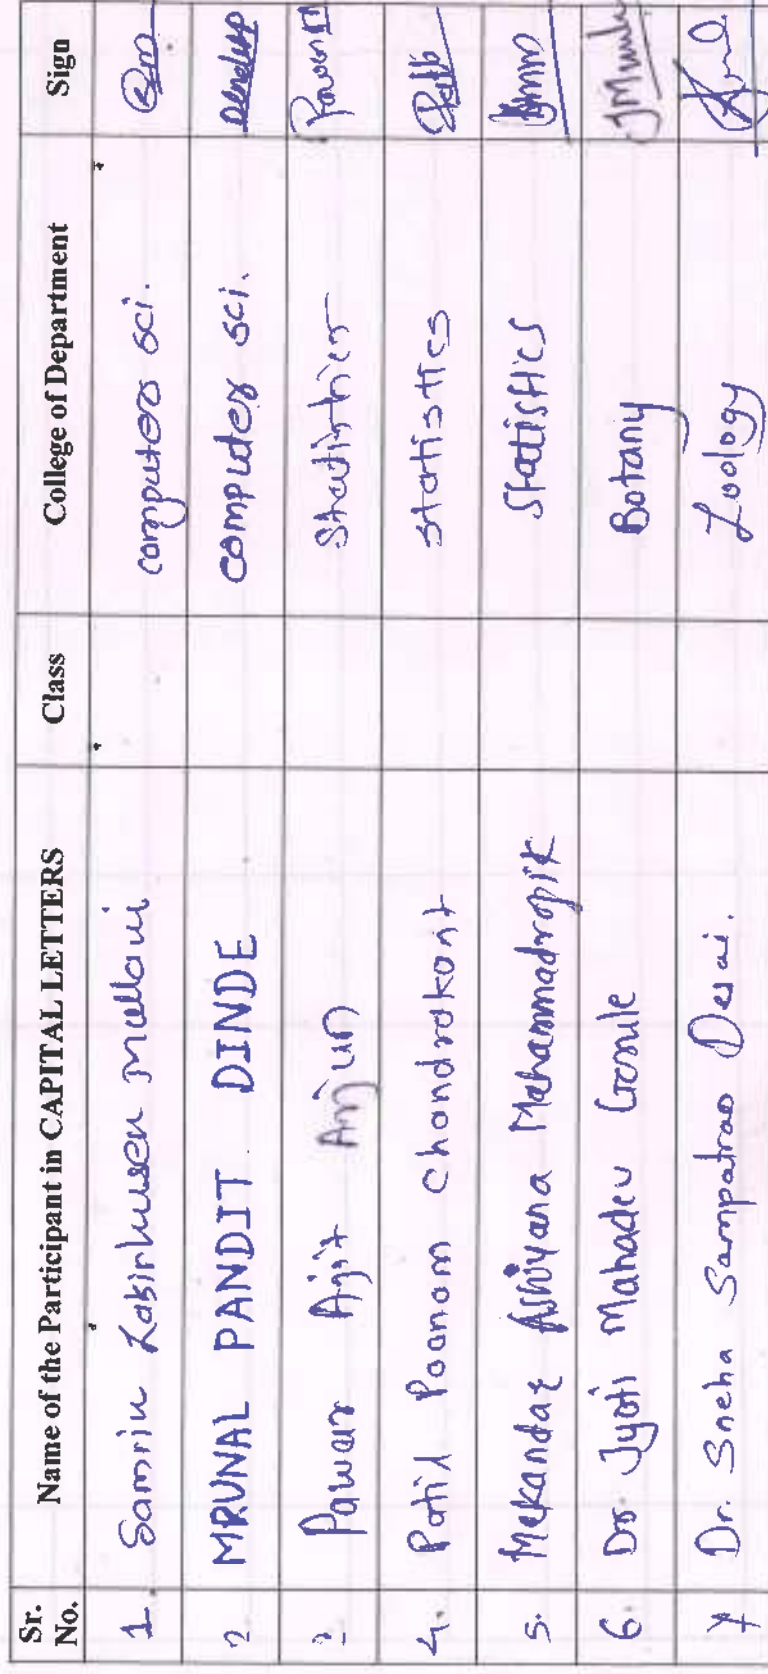 Sr. No. Name of the Participant in CAPITAL LETTERS Class College of Department Sign
1. Samrin Zakirhusen Mullani computer sci.
2 MRUNAL PANDIT DINDE computer sci.
3 Pawar Ajit Arjun Statistics Pawar
4. Patil Poonam Chandrakant statistics
5. Mekandar Ashiyana Mahammadrapik Statistics
6. Dr. Jyoti Mahadev Gonule Botany
7 Dr. Sneha Sampatrao Desai. Zoology